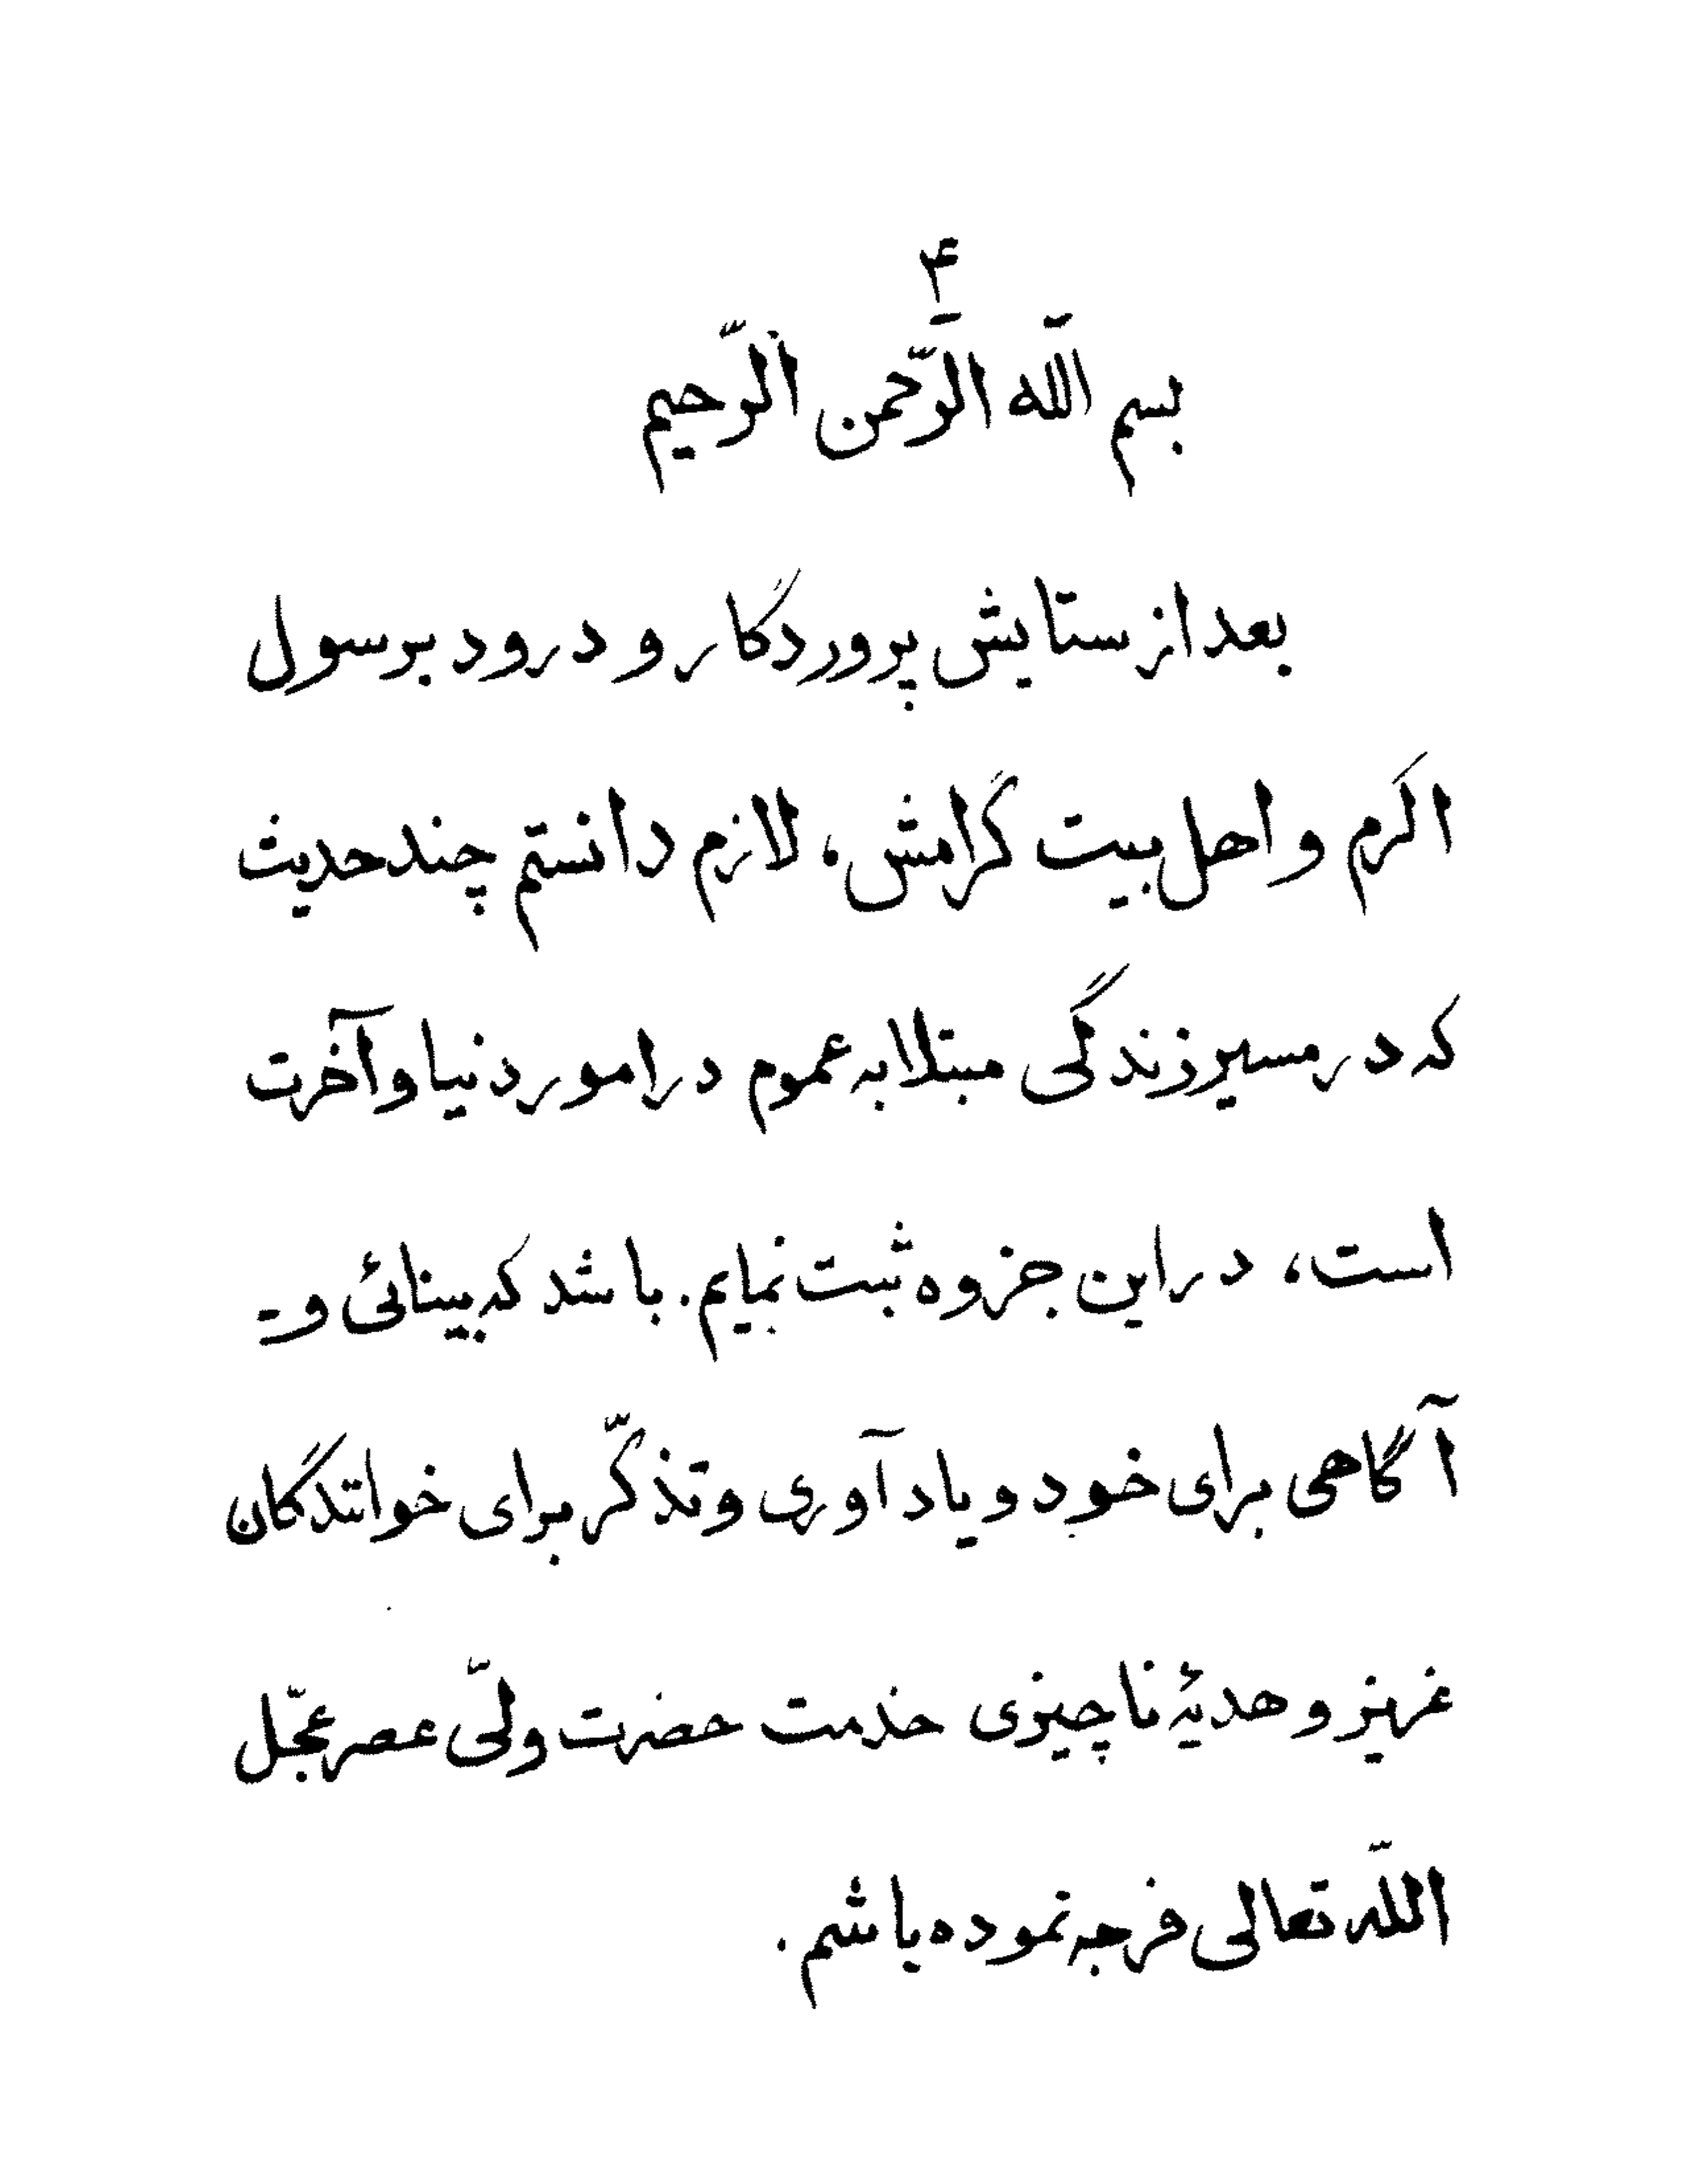 ۴
بسم اللّه الرّحمن الرّحیم
بعد از ستایش پروردگار و درود بر رسول
اکرم و اهل بیت گرامش، لازم دانستم چند حدیث
که در مسیر زندگی مبتلا به عموم در امور دنیا و آخرت
است، در این جزوه ثبت نمایم. باشد که بینائی و -
آگاهی برای خود و یادآوری و تذکّر برای خوانندگان
عزیز و هدیهٔ ناچیزی خدمت حضرت ولیّ عصر عجّل
اللّه تعالی فرجه نموده باشم.